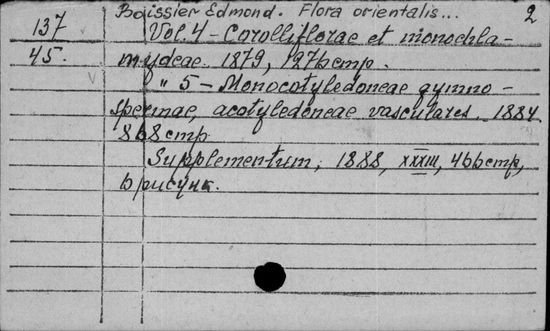 Boissier Edmond. Flora orientalis... 2
137 Vol. 4 – Corolliflorae et monochla-
45. mydeae. 1879, 1276 стр.
" 5 – Monocotyledoneae gymno-
spermae, acotyledoneae vasculares. 1884.
868 стр
Supplementum, 1888, XXXIII, 466 стр,
6 рисунк.